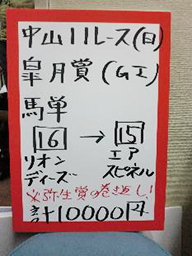 中山11レース(日)
皐月賞(GI)
馬単
16 → 15
リオン エア
ディーズ スピネル
弥生賞の巻返し!
10000円